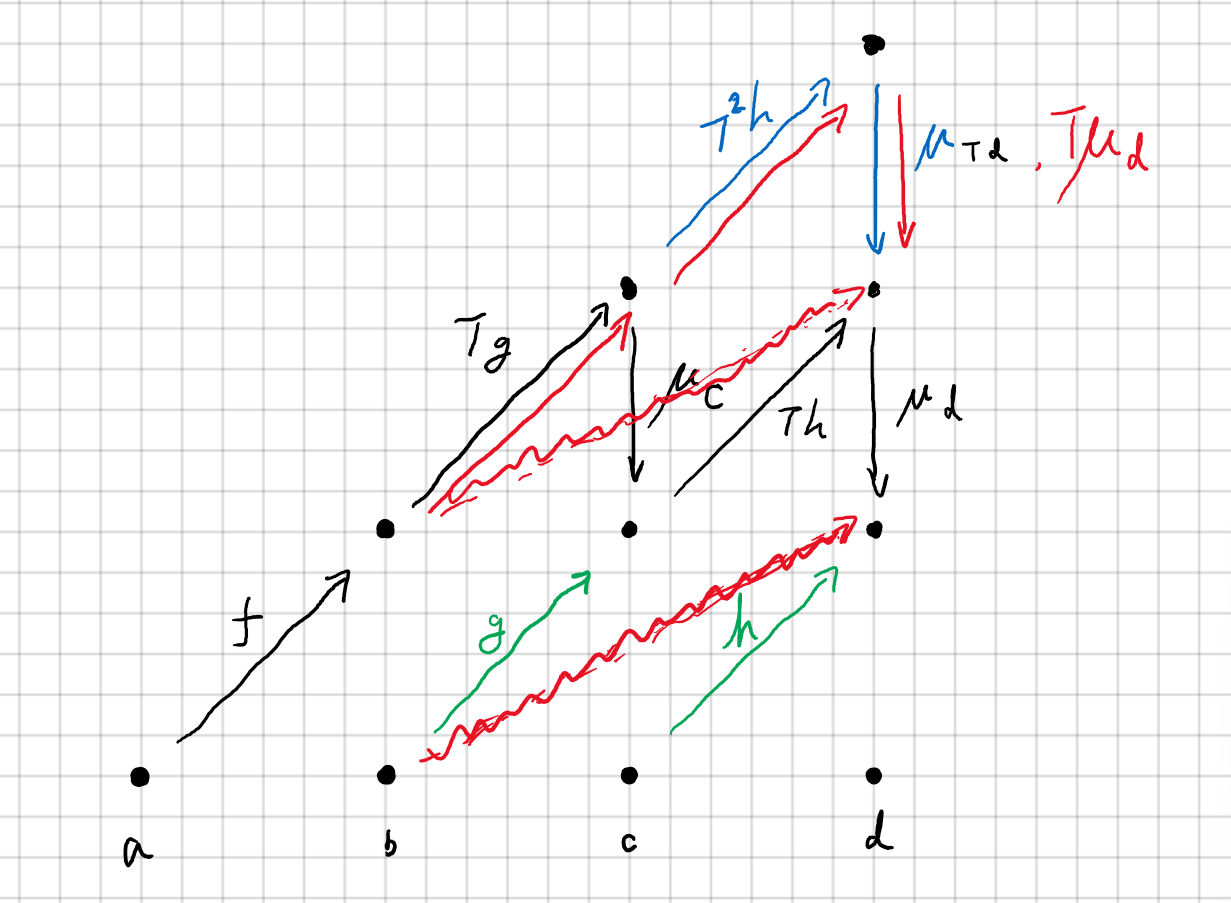 T²h
μ_Td , Tμ_d
Tg
μ_c
Th
μ_d
f
g
h
a b c d